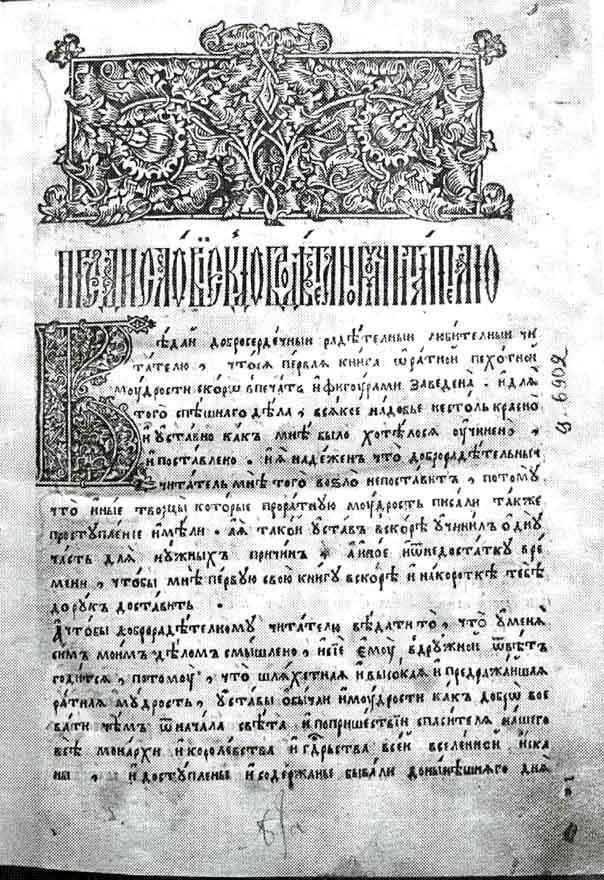 ПРЕДИСЛОВЇЕ ЧИТАТЕЛЮ
Вѣдаи добросердечныи радѣтелныи любителныи чи
тателю , что сїя первая книга ѡ ратнои пехотнои
моудрости скорѡ в печать и фигоурами заведена . и для
того спѣшнаго дѣла , всякое надобье не столь красно
и уставно какъ мнѣ было хотѣлося оучинено ,
и поставлено . и я надеженъ что доброрадѣтельныи
читатель мнѣ того во ѕло непоставитъ , потому
что иные творцы которые про ратную моудрость писали также
проступленїе имѣли . а я такои уставъ вскоре учинил ѡдну
часть для нужныхъ причинъ * а иное ѿ недостатку вре
мени , чтобы мнѣ первую свою книгу вскорѣ и накороткѣ тебѣ
до рукъ доставить .
А чтобы доброрадѣтелному читателю вѣдати то , что у меня
симъ моимъ дѣломъ смышлено , и сїе емоу в дружнои ѿвѣтъ
годится , потомоу , что шляхетная и высокая и предражаишая
ратная мудрость , уставы обычаи и моудрости какъ добрѡ вое
вати чѣмъ ѿ начала свѣта и по пришествїи спасителя нашего
всѣ монархи и королевства и гдⷭ҇рьства всеи вселеннои иска
ны , и доступлены и содержаны бывали до нынѣшняго дня
6902